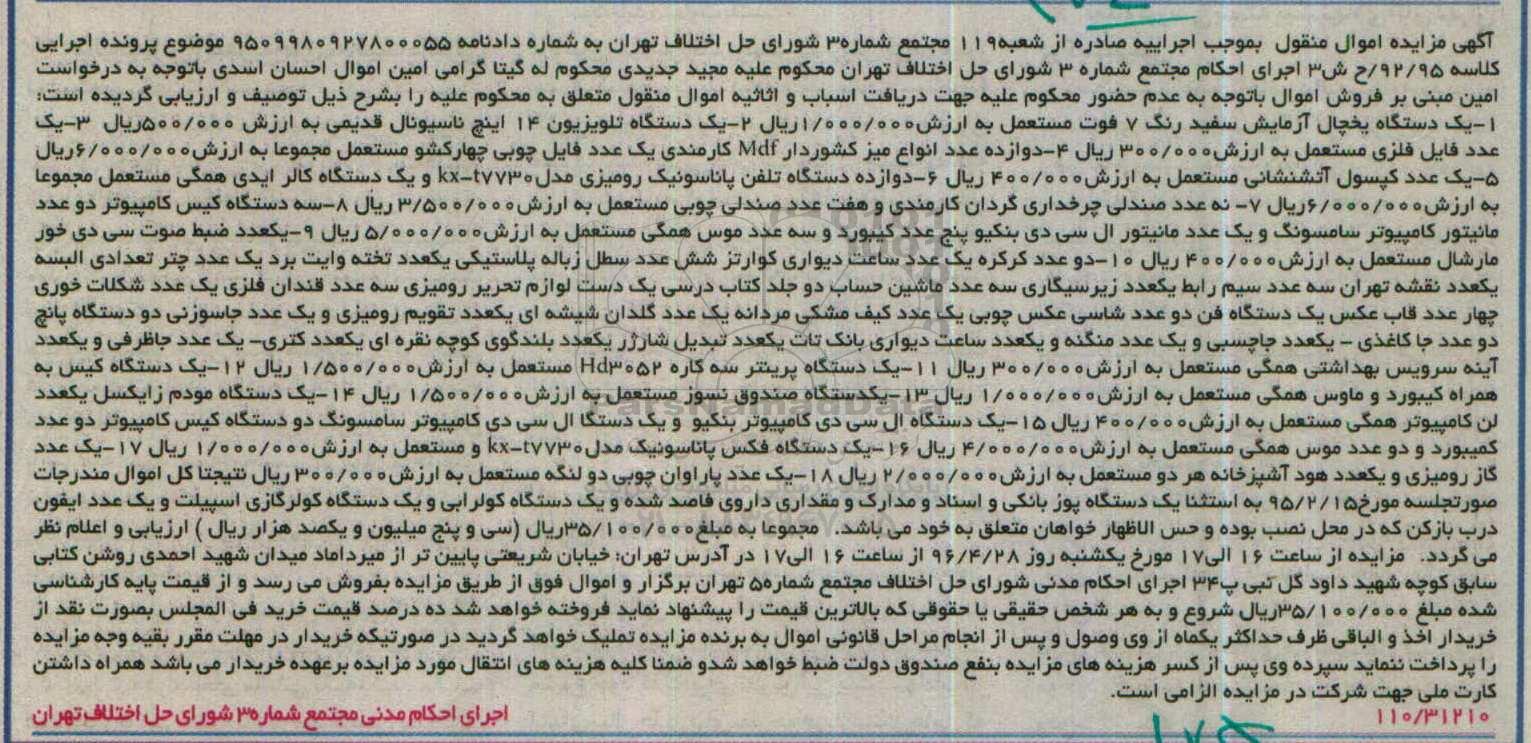 آگهی مزایده اموال منقول بموجب اجراییه صادره از شعبه۱۱۹ مجتمع شماره۳ شورای حل اختلاف تهران به شماره دادنامه ۹۵۰۹۹۸۰۹۲۷۸۰۰۰۵۵ موضوع پرونده اجرایی
کلاسه ۹۲/۹۵/ح ش۳ اجرای احکام مجتمع شماره ۳ شورای حل اختلاف تهران محکوم علیه مجید جدیدی محکوم له گیتا گرامی امین اموال احسان اسدی باتوجه به درخواست
امین مبنی بر فروش اموال باتوجه به عدم حضور محکوم علیه جهت دریافت اسباب و اثاثیه اموال منقول متعلق به محکوم علیه را بشرح ذیل توصیف و ارزیابی گردیده است:
۱-یک دستگاه یخچال آزمایش سفید رنگ ۷ فوت مستعمل به ارزش۱/۰۰۰/۰۰۰ریال ۲-یک دستگاه تلویزیون ۱۴ اینچ ناسیونال قدیمی به ارزش ۵۰۰/۰۰۰ریال ۳-یک
عدد فایل فلزی مستعمل به ارزش۳۰۰/۰۰۰ ریال ۴-دوازده عدد انواع میز کشوردار Mdf کارمندی یک عدد فایل چوبی چهارکشو مستعمل مجموعا به ارزش۶/۰۰۰/۰۰۰ریال
۵-یک عدد کپسول آتشنشانی مستعمل به ارزش۴۰۰/۰۰۰ ریال ۶-دوازده دستگاه تلفن پاناسونیک رومیزی مدل۰kx-t۷۷۳ و یک دستگاه کالر ایدی همگی مستعمل مجموعا
به ارزش۶/۰۰۰/۰۰۰ریال ۷- نه عدد صندلی چرخداری گردان کارمندی و هفت عدد صندلی چوبی مستعمل به ارزش۳/۵۰۰/۰۰۰ ریال ۸-سه دستگاه کیس کامپیوتر دو عدد
مانیتور کامپیوتر سامسونگ و یک عدد مانیتور ال سی دی بنکیو پنج عدد کیبورد و سه عدد موس همگی مستعمل به ارزش۵/۰۰۰/۰۰۰ ریال ۹-یکعدد ضبط صوت سی دی خور
مارشال مستعمل به ارزش۴۰۰/۰۰۰ ریال ۱۰-دو عدد کرکره یک عدد ساعت دیواری کوارتز شش عدد سطل زباله پلاستیکی یکعدد تخته وایت برد یک عدد چتر تعدادی البسه
یکعدد نقشه تهران سه عدد سیم رابط یکعدد زیرسیگاری سه عدد ماشین حساب دو جلد کتاب درسی یک دست لوازم تحریر رومیزی سه عدد قندان فلزی یک عدد شکلات خوری
چهار عدد قاب عکس یک دستگاه فن دو عدد شاسی عکس چوبی یک عدد کیف مشکی مردانه یک عدد گلدان شیشه ای یکعدد تقویم رومیزی و یک عدد جاسوزنی دو دستگاه پانچ
دو عدد جا کاغذی - یکعدد جاچسبی و یک عدد منگنه و یکعدد ساعت دیواری بانک تات یکعدد تبدیل شارژر یکعدد بلندگوی کوچه نقره ای یکعدد کتری- یک عدد جاظرفی و یکعدد
آینه سرویس بهداشتی همگی مستعمل به ارزش۳۰۰/۰۰۰ ریال ۱۱-یک دستگاه پرینتر سه کاره Hd۳۰۵۲ مستعمل به ارزش۱/۵۰۰/۰۰۰ ریال ۱۲-یک دستگاه کیس به
همراه کیبورد و ماوس همگی مستعمل به ارزش۱/۰۰۰/۰۰۰ ریال ۱۳-یکدستگاه صندوق نسوز مستعمل به ارزش۱/۵۰۰/۰۰۰ ریال ۱۴-یک دستگاه مودم زایکسل یکعدد
لن کامپیوتر همگی مستعمل به ارزش۴۰۰/۰۰۰ ریال ۱۵-یک دستگاه ال سی دی کامپیوتر بنکیو و یک دستگا ال سی دی کامپیوتر سامسونگ دو دستگاه کیس کامپیوتر دو عدد
کمیبورد و دو عدد موس همگی مستعمل به ارزش۴/۰۰۰/۰۰۰ ریال ۱۶-یک دستگاه فکس پاناسونیک مدل۰kx-t۷۷۳ و مستعمل به ارزش۱/۰۰۰/۰۰۰ ریال ۱۷-یک عدد
گاز رومیزی و یکعدد هود آشپزخانه هر دو مستعمل به ارزش۲/۰۰۰/۰۰۰ ریال ۱۸-یک عدد پاراوان چوبی دو لنگه مستعمل به ارزش۳۰۰/۰۰۰ ریال نتیجتا کل اموال مندرجات
صورتجلسه مورخ۹۵/۲/۱۵ به استثنا یک دستگاه پوز بانکی و اسناد و مدارک و مقداری داروی فاصد شده و یک دستگاه کولرابی و یک دستگاه کولرگازی اسپیلت و یک عدد ایفون
درب بازکن که در محل نصب بوده و حس الاظهار خواهان متعلق به خود می باشد. مجموعا به مبلغ۳۵/۱۰۰/۰۰۰ریال (سی و پنج میلیون و یکصد هزار ریال ) ارزیابی و اعلام نظر
می گردد. مزایده از ساعت ۱۶ الی۱۷ مورخ یکشنبه روز ۹۶/۴/۲۸ از ساعت ۱۶ الی۱۷ در آدرس تهران: خیابان شریعتی پایین تر از میرداماد میدان شهید احمدی روشن کتابی
سابق کوچه شهید داود گل نبی پ۳۴ اجرای احکام مدنی شورای حل اختلاف مجتمع شماره۵ تهران برگزار و اموال فوق از طریق مزایده بفروش می رسد و از قیمت پایه کارشناسی
شده مبلغ ۳۵/۱۰۰/۰۰۰ریال شروع و به هر شخص حقیقی یا حقوقی که بالاترین قیمت را پیشنهاد نماید فروخته خواهد شد ده درصد قیمت خرید فی المجلس بصورت نقد از
خریدار اخذ و الباقی ظرف حداکثر یکماه از وی وصول و پس از انجام مراحل قانونی اموال به برنده مزایده تملیک خواهد گردید در صورتیکه خریدار در مهلت مقرر بقیه وجه مزایده
را پرداخت ننماید سپرده وی پس از کسر هزینه های مزایده بنفع صندوق دولت ضبط خواهد شدو ضمنا کلیه هزینه های انتقال مورد مزایده برعهده خریدار می باشد همراه داشتن
کارت ملی جهت شرکت در مزایده الزامی است.
۱۱۰/۳۱۲۱۰ اجرای احکام مدنی مجتمع شماره۳ شورای حل اختلاف تهران